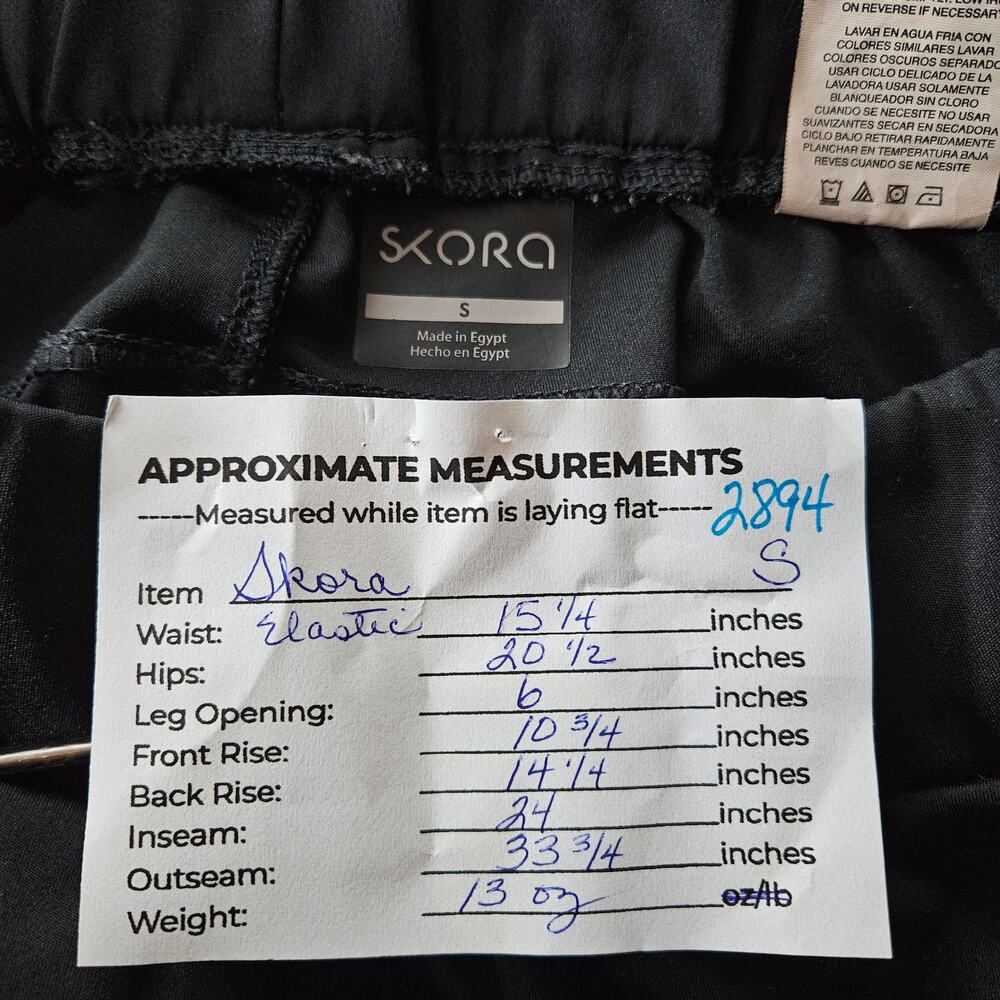 ON REVERSE IF NECESSARY
LAVAR EN AGUA FRIA CON
COLORES SIMILARES LAVAR
COLORES OSCUROS SEPARADO
USAR CICLO DELICADO DE LA
LAVADORA USAR SOLAMENTE
BLANQUEADOR SIN CLORO
CUANDO SE NECESITE NO USAR
SUAVIZANTES SECAR EN SECADORA
CICLO BAJO RETIRAR RAPIDAMENTE
PLANCHAR EN TEMPERATURA BAJA
REVES CUANDO SE NECESITE
SKORA
S
Made in Egypt
Hecho en Egypt
APPROXIMATE MEASUREMENTS
-----Measured while item is laying flat-----
2894
Item Skora S
Waist: Elastic 15 1/4 inches
Hips: 20 1/2 inches
Leg Opening: 6 inches
Front Rise: 10 3/4 inches
Back Rise: 14 1/4 inches
Inseam: 24 inches
Outseam: 33 3/4 inches
Weight: 13 oz oz/lb